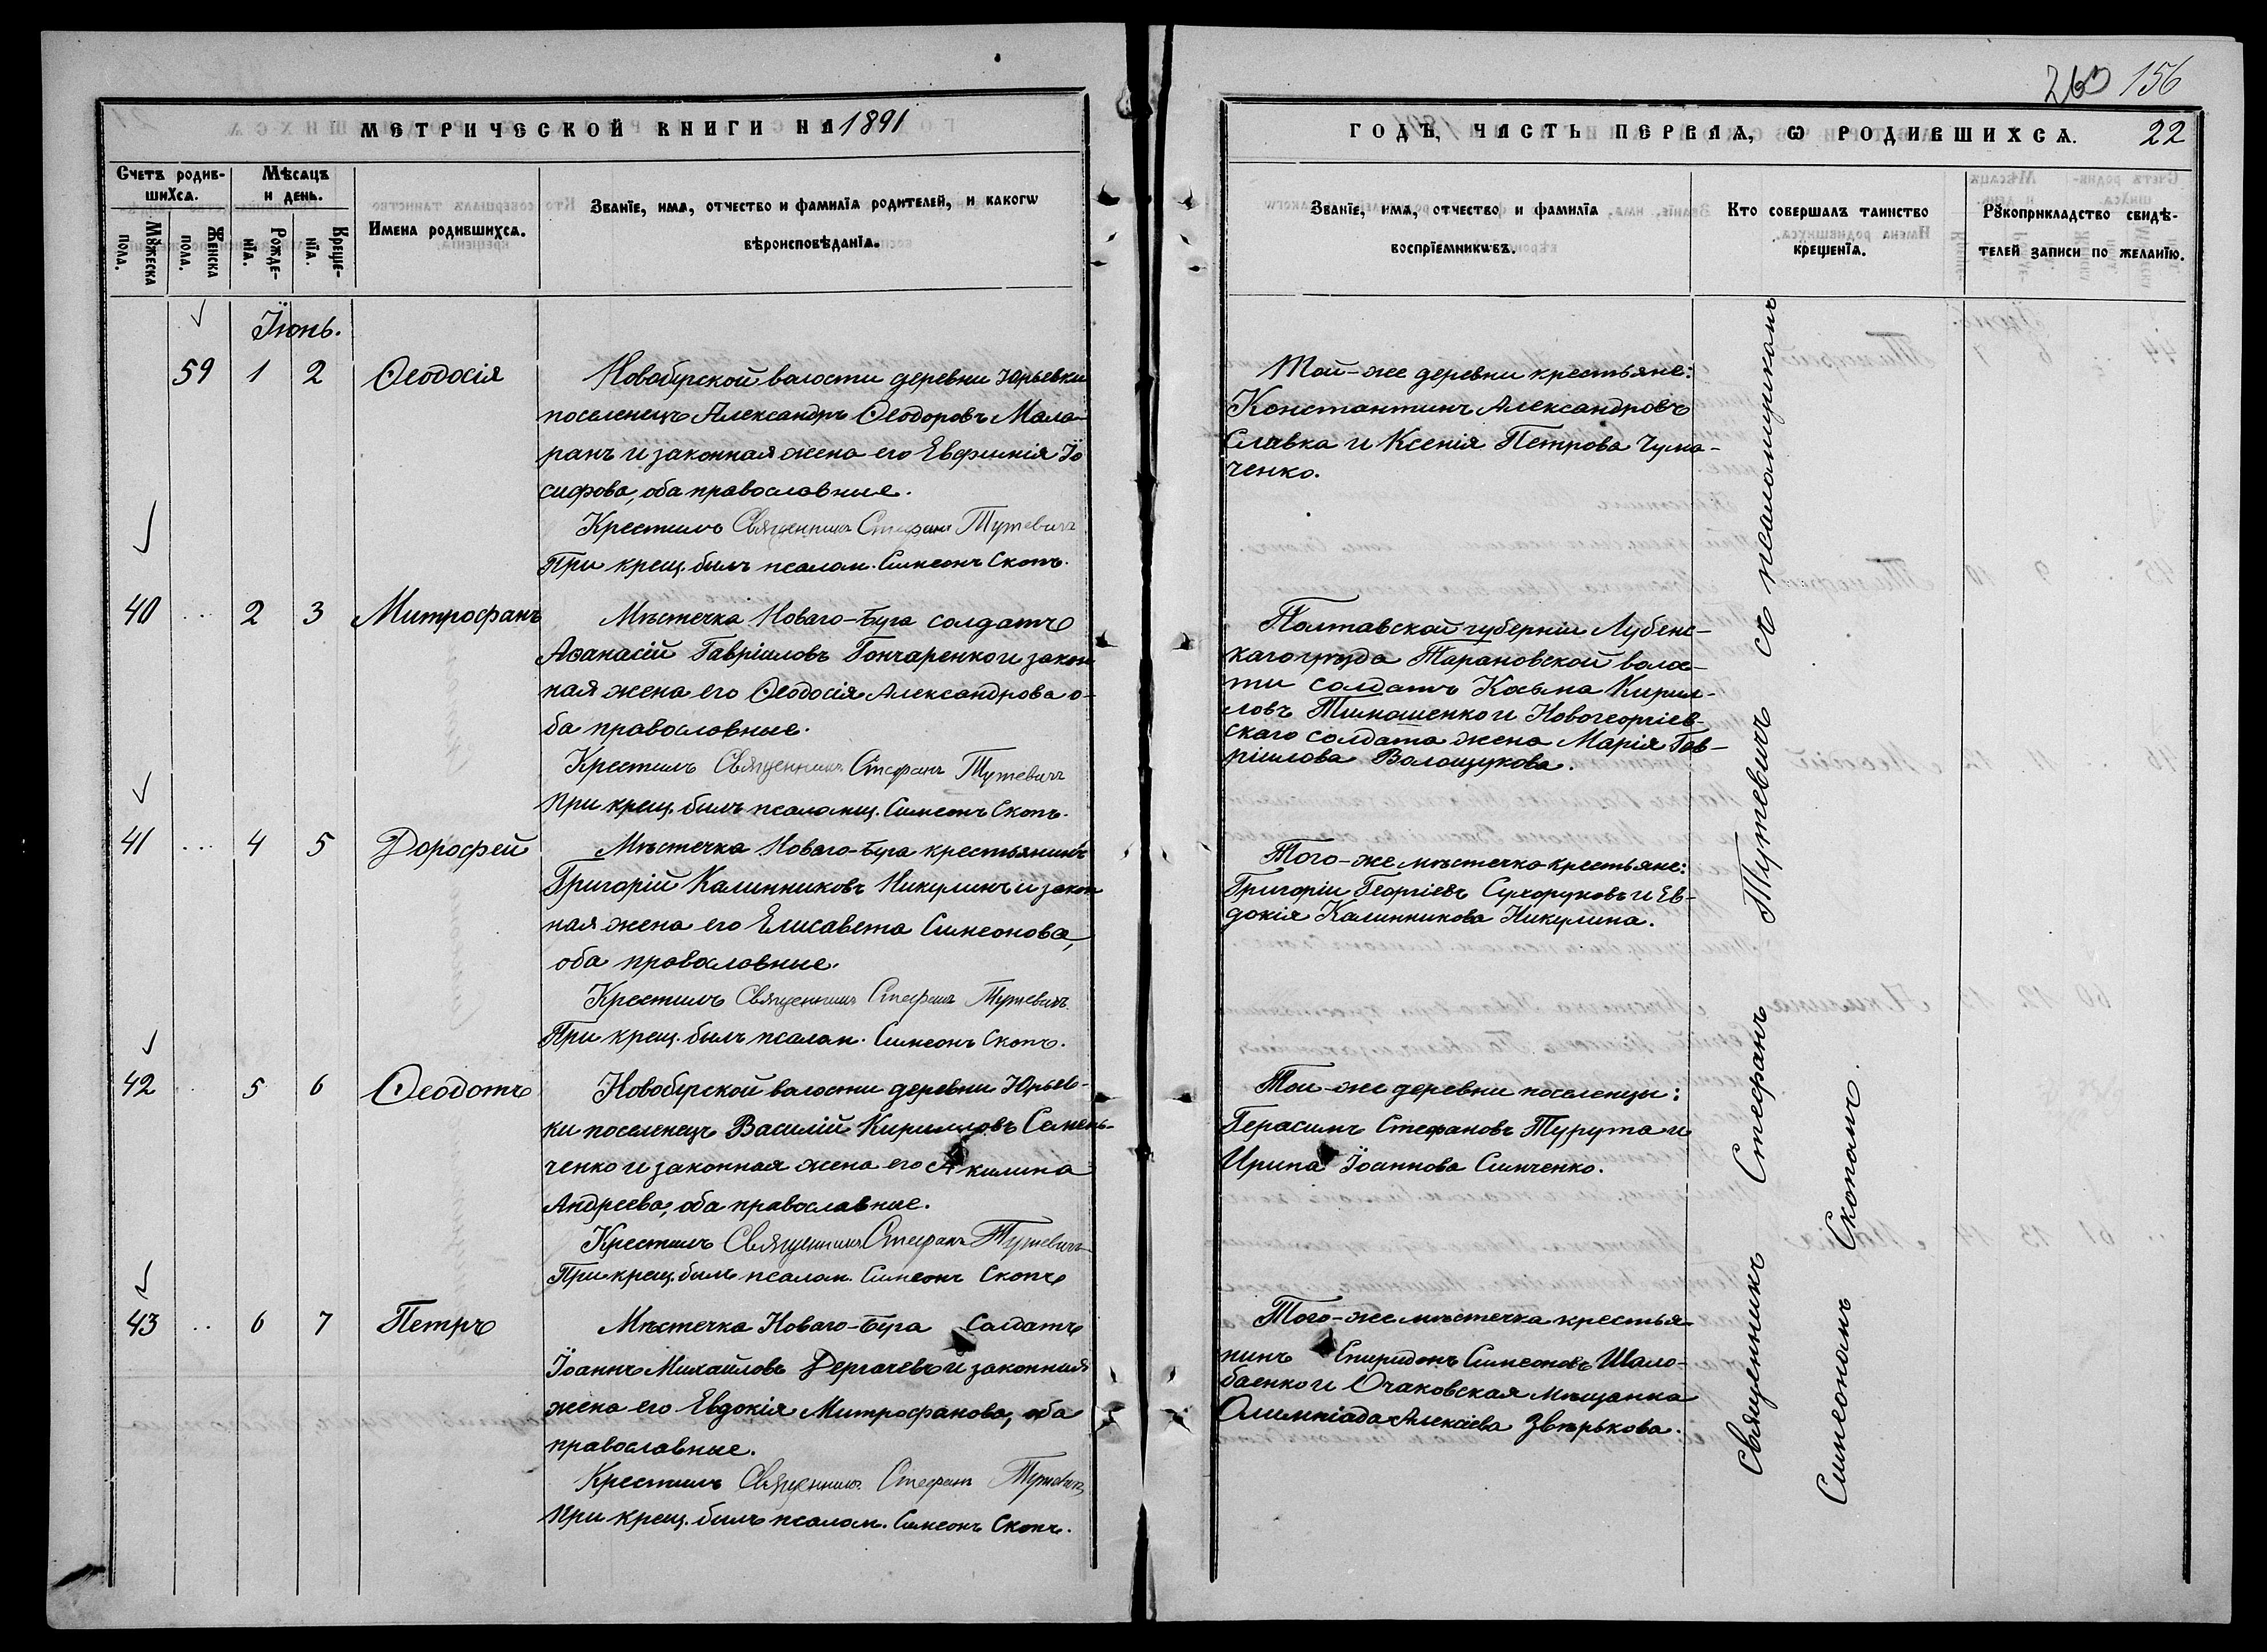 263 156
МЕТРИЧЕСКОЙ КНИГИ НА 1891
ГОДЪ, ЧАСТЬ ПЕРВАЯ, Ѡ РОДИВШИХСѦ. 22
Счетъ родив-
шихсѧ.
Мѣсяцъ
и день.
Мꙋжеска
пола.
Женска
пола.
Рожде-
нїѧ.
Креще-
нїѧ.
Имена родившихсѧ.
Званїе, имѧ, отчество и фамилїа родителей, и какогѡ
вѣроисповѣданїѧ.
Званїе, имѧ, отчество и фамилїа
воспрїемникѡвъ.
Кто совершалъ таинство
крещенїѧ.
Рꙋкоприкладство свидѣ-
телей записи по желанїю.
Їюнь.
59 1 2 Ѳеодосія
Новобугской волости деревни Юрьевки
поселенецъ Александръ Ѳеодоровъ Мала-
ранъ и законная жена его Евфимія Їо
сифова, оба православные.
Крестилъ Священникъ Стефанъ Тутевичъ
При крещ. былъ псалом. Симеонъ Скопъ.
Той-же деревни крестьяне:
Константинъ Александровъ
Сливка и Ксенія Петрова Чума-
ченко.
40 .. 2 3 Митрофанъ
Мѣстечка Новаго-Буга солдатъ
Аѳанасій Гавріиловъ Гончаренко и закон
ная жена его Ѳеодосія Александрова о-
ба православные.
Крестилъ Священникъ Стефанъ Тутевичъ
При крещ. былъ псаломщ. Симеонъ Скопъ.
Полтавской губерніи Лубенс-
каго уѣзда Тарановской волос-
ти солдатъ Косьма Кирил-
ловъ Тимошенко и Новогеоргіев-
скаго солдата жена Марія Гав-
ріилова Волощукова.
41 ... 4 5 Дороѳей
Мѣстечка Новаго-Буга крестьянинъ
Григорій Калинниковъ Никулинъ и закон
ная жена его Елисавета Симеонова,
оба православные.
Крестилъ Священникъ Стефанъ Тутевичъ
При крещ. былъ псалом. Симеонъ Скопъ.
Того-же мѣстечка крестьяне:
Григорій Георгіевъ Сухоруковъ и Ев-
докія Калинникова Никулина.
42 . 5 6 Ѳеодотъ
Новобугской волости деревни Юрьев-
ки поселенецъ Василій Кирилловъ Семень-
ченко и законная жена его Акилина
Андреева, оба православные.
Крестилъ Священникъ Стефанъ Тутевичъ
При крещ. былъ псалом. Симеонъ Скопъ
Той-же деревни поселенцы:
Герасимъ Стефановъ Турута и
Ирина Їоаннова Симченко.
43 .. 6 7 Петръ
Мѣстечка Новаго-Буга Солдатъ
Їоаннъ Михаиловъ Дергачевъ и законная
жена его Евдокія Митрофанова, оба
православные.
Крестилъ Священникъ Стефанъ Тутевичъ
При крещ. былъ псалом. Симеонъ Скопъ.
Того-же мѣстечка крестья-
нинъ Спиридонъ Симеоновъ Шало-
баенко и Очаковская мѣщанка
Олимпіада Алексіева Звѣрькова.
Священникъ Стефанъ Тутевичъ съ псаломщикомъ
Симеономъ Скопомъ.